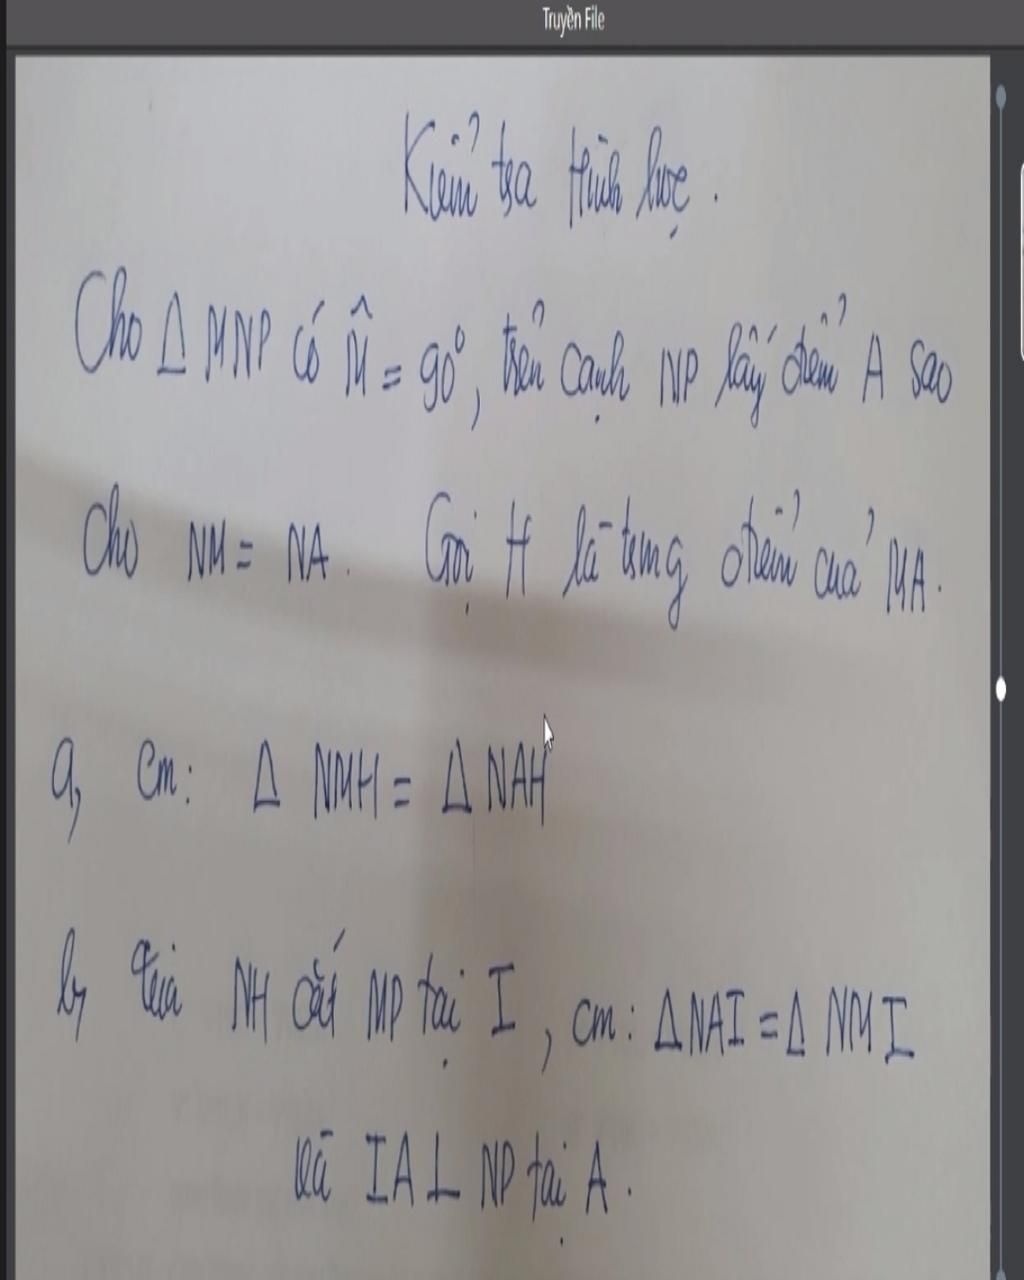 Truyền File
Kiểm tra Hình học.
Cho Δ MNP có M̂ = 90°, trên cạnh NP lấy điểm A sao
cho NM = NA. Gọi H là trung điểm của MA.
a, Cm: Δ NMH = Δ NAH
b, Tia NH cắt MP tại I, cm: Δ NAI = Δ NMI
và IA ⊥ NP tại A.